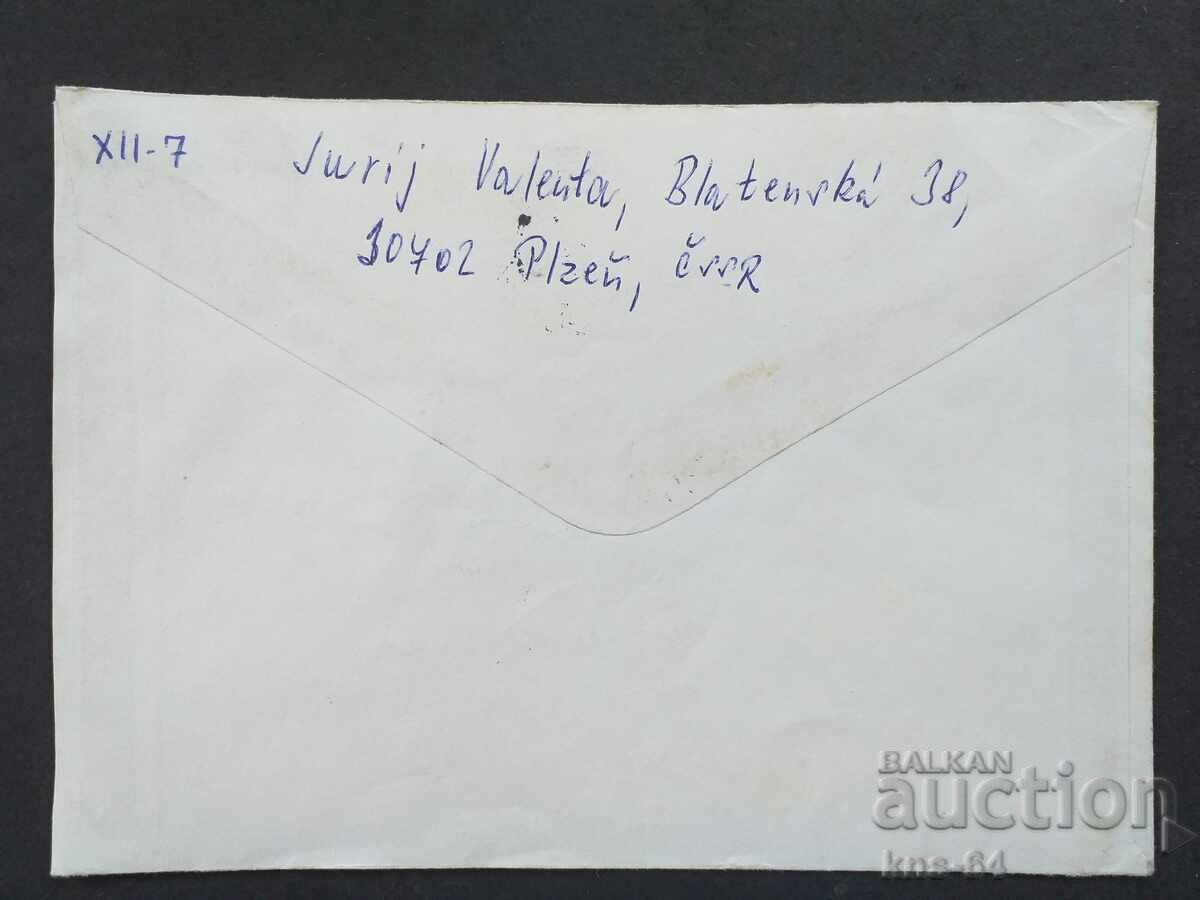 XII-7 Jurij Valenta, Blatenská 38,
30702 Plzeň, ČSSR
BALKAN
auction
kns-64